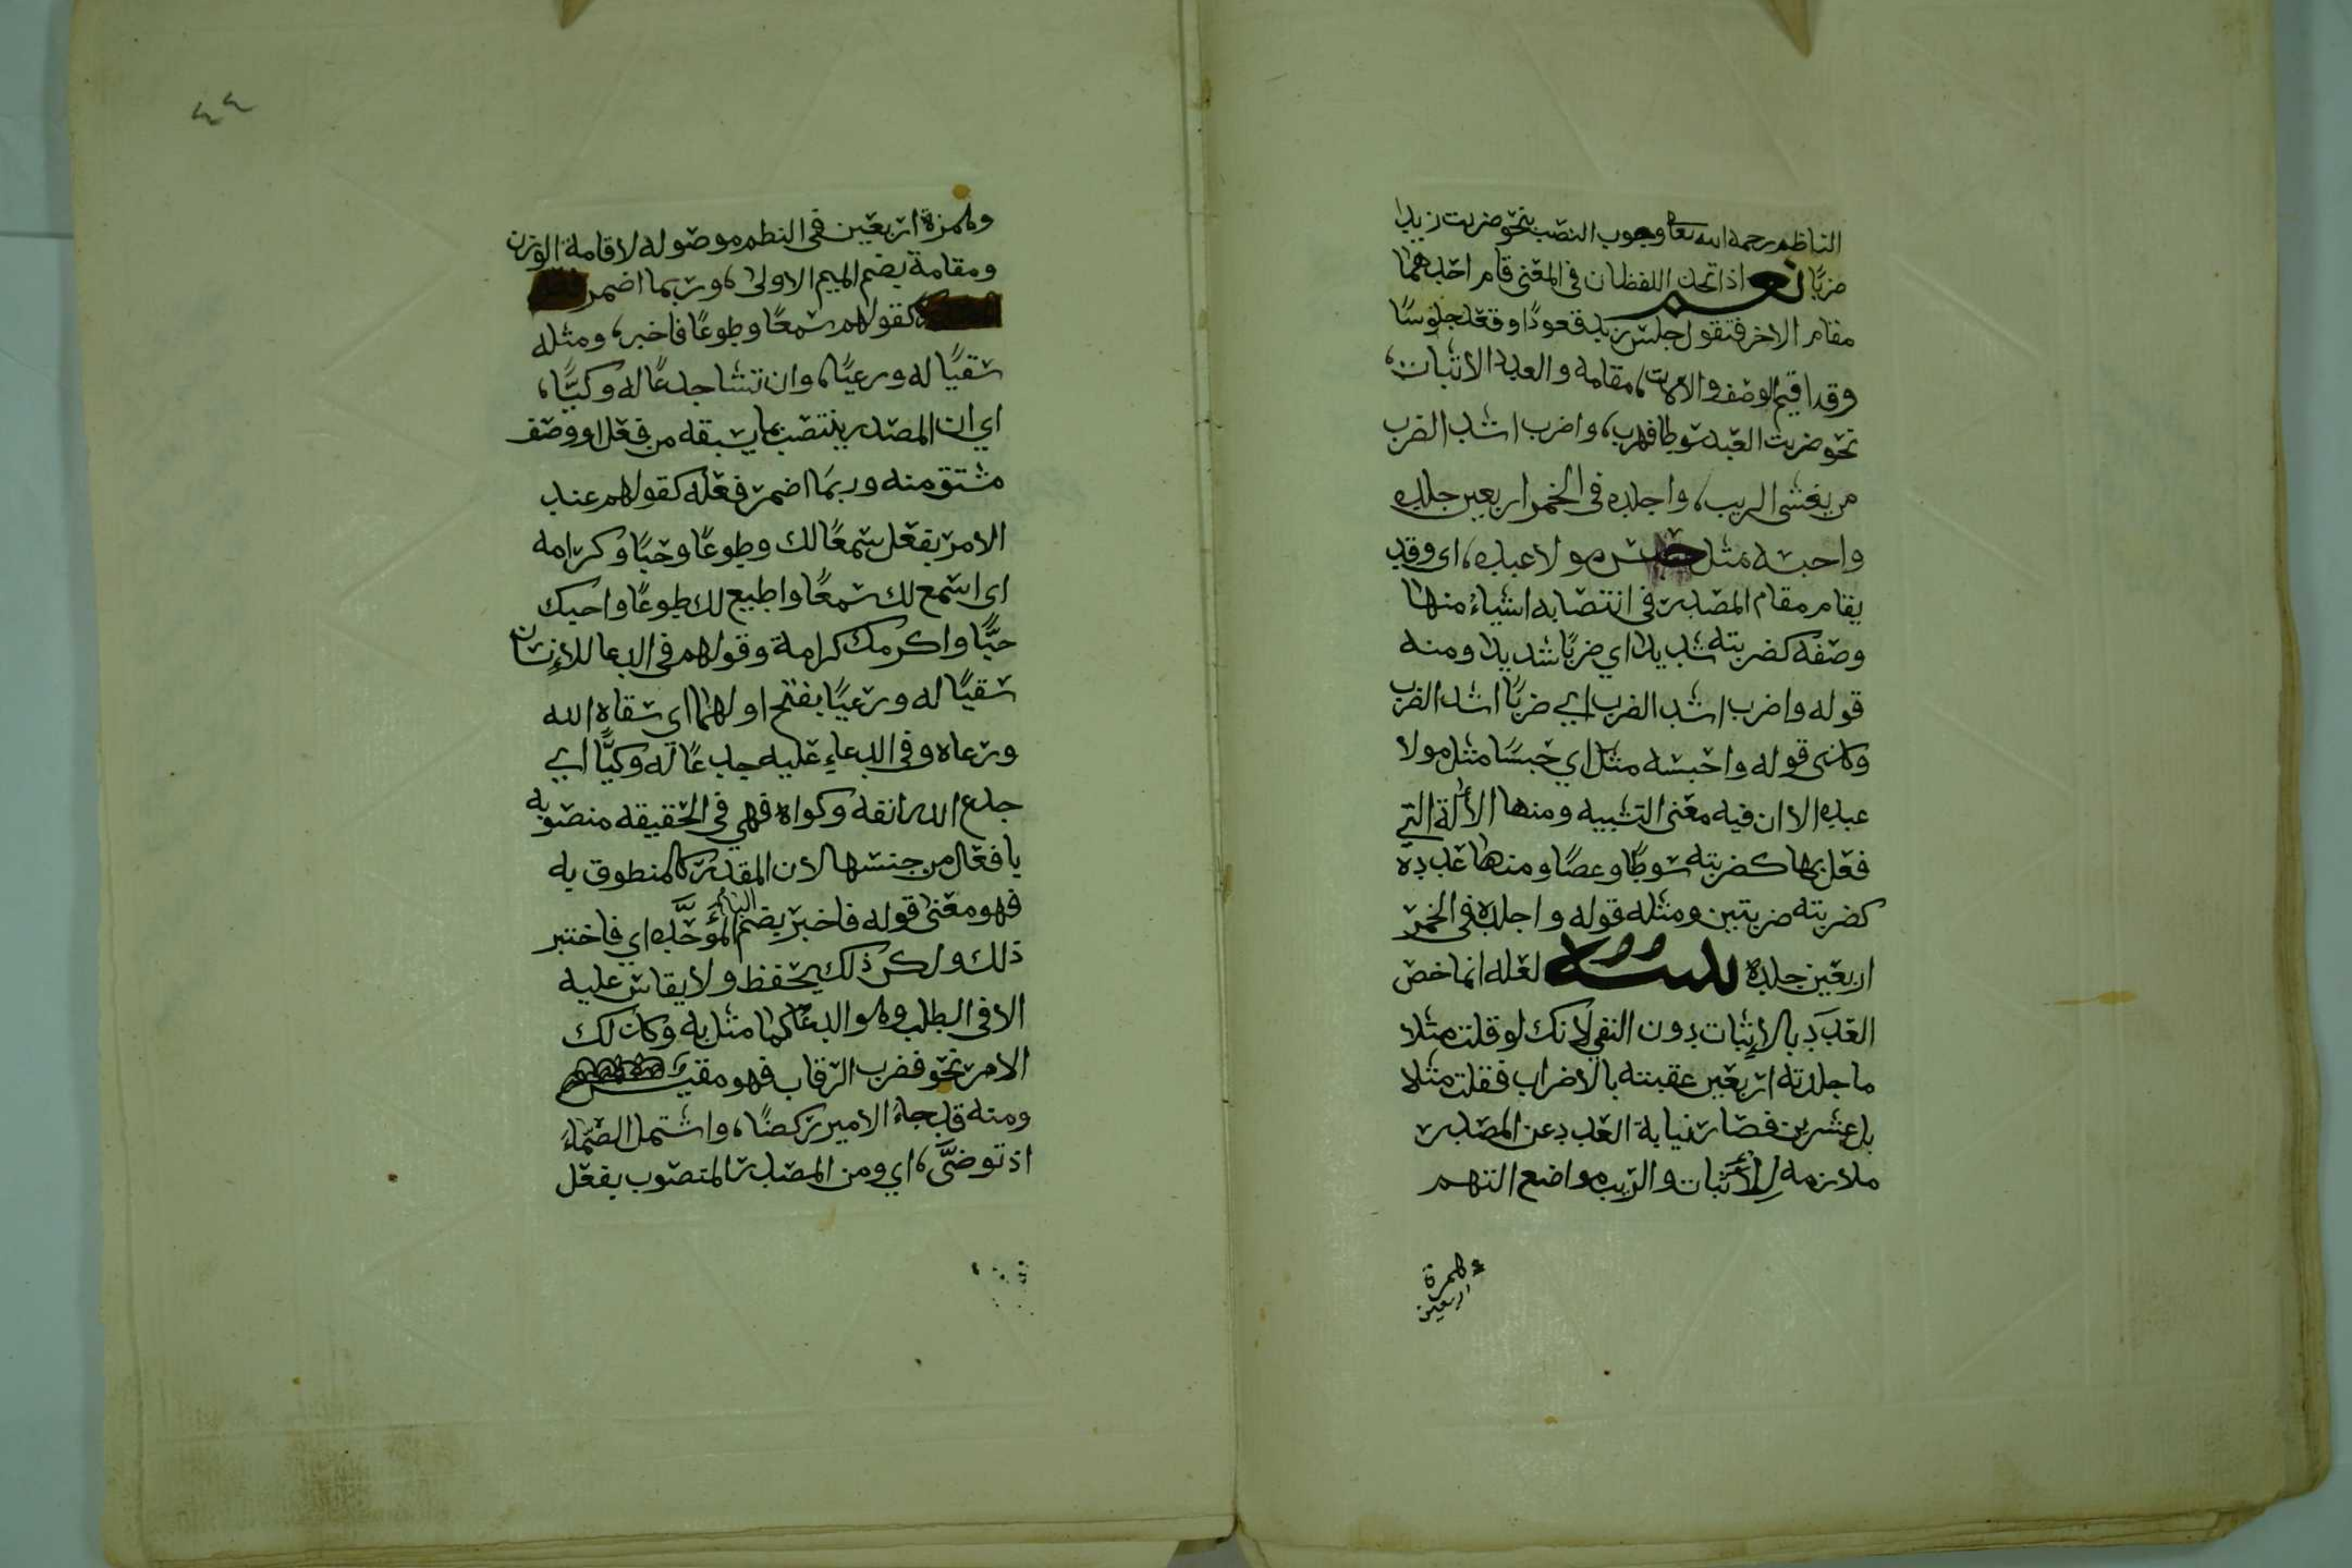 الناظم رحمه الله تعالى وجوب النصب بنحو ضربت زيدا
ضربًا نعم اذا اتحد اللفظان في المعنى قام احدهما
مقام الاخر فتقول جلس زيد قعودًا وقعد جلوسًا
وقد اقيم الوصف والالات، مقامه والعدد الاثبات،
نحو ضربت العبد سوطا فهرب، واضرب اشد الضرب
من يغشى الريب، واجلده في الخمر اربعين جلده
واحبسه مثل حبس مولا عبده، اي وقد
يقام مقام المصدر في انتصابه اشياء منها
وصفه كضربته شديدا اي ضربًا شديدا ومنه
قوله واضرب اشد الضرب اي ضربًا اشد الضرب
وكذى قوله واحبسه مثل اي حبسًا مثل مولا
عبده الا ان فيه معنى التشبيه ومنها الألة التي
فعل بها كضربته سوطًا وعصًا ومنها عدده
كضربته ضربتين ومثله قوله واجلده في الخمر
اربعين جلدة تنبيه لعله انما خص
العدد بالاثبات دون النفي لانك لو قلت مثلا
ما جلدته اربعين عقبته بالاضراب فقلت مثلا
بل عشرين فصار نيابة العدد عن المصدر
ملازمه للأثبات والريب مواضع التهم
وهمزة
اربعين
٤٤
وهمزة اربعين في النظم موصوله لاقامة الوزن
ومقامة بضم الميم الاولى، وربما اضمر
كقولهم سمعًا وطوعًا فاخبر، ومثله
سقيًا له ورعيًا، وان تشا جدعًا له وكيًّا،
اي ان المصدر ينتصب بما يسبقه من فعل او وصف
مشتق منه وربما اضمر فعله كقولهم عند
الامر بفعل سمعًا لك وطوعًا وحبًا وكرامه
اي اسمع لك سمعًا واطيع لك طوعًا واحبك
حبًّا واكرمك كرامة وقولهم في الدعا للإنسان
سقيًا له ورعيًا بفتح اولهما اي سقاه الله
ورعاه وفي الدعاء عليه جدعًا له وكيًّا اي
جدع الله انفه وكواه فهي في الحقيقه منصوبه
بافعال من جنسها لان المقدر كالمنطوق به
فهو معنى قوله فاخبر بضم الباء المؤحَّده اي فاختبر
ذلك ولكن ذلك يحفظ ولا يقاس عليه
الا في الطلب وهو الدعا كما مثل به وكذلك
الامر نحو فضرب الرقاب فهو مقيس
ومنه قد جاء الامير ركضًا، واشتمل الصَّماءَ
اذ توضَّى، اي ومن المصدر المنصوب بفعل